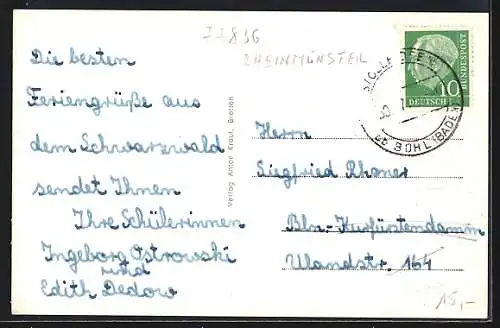 77836
RHEINMÜNSTER
Die besten
Feriengrüße aus
dem Schwarzwald
sendet Ihnen
Ihre Schülerinnen
Ingeborg Ostrowski
und
Edith Dedow
Verlag Anton Kraut, Bretten
DEUTSCHE
BUNDESPOST
10
BÜHL (BADEN)
Herrn
Siegfried Rhoner
Bln.-Kurfürstendamm
Ulandstr. 164
15,-